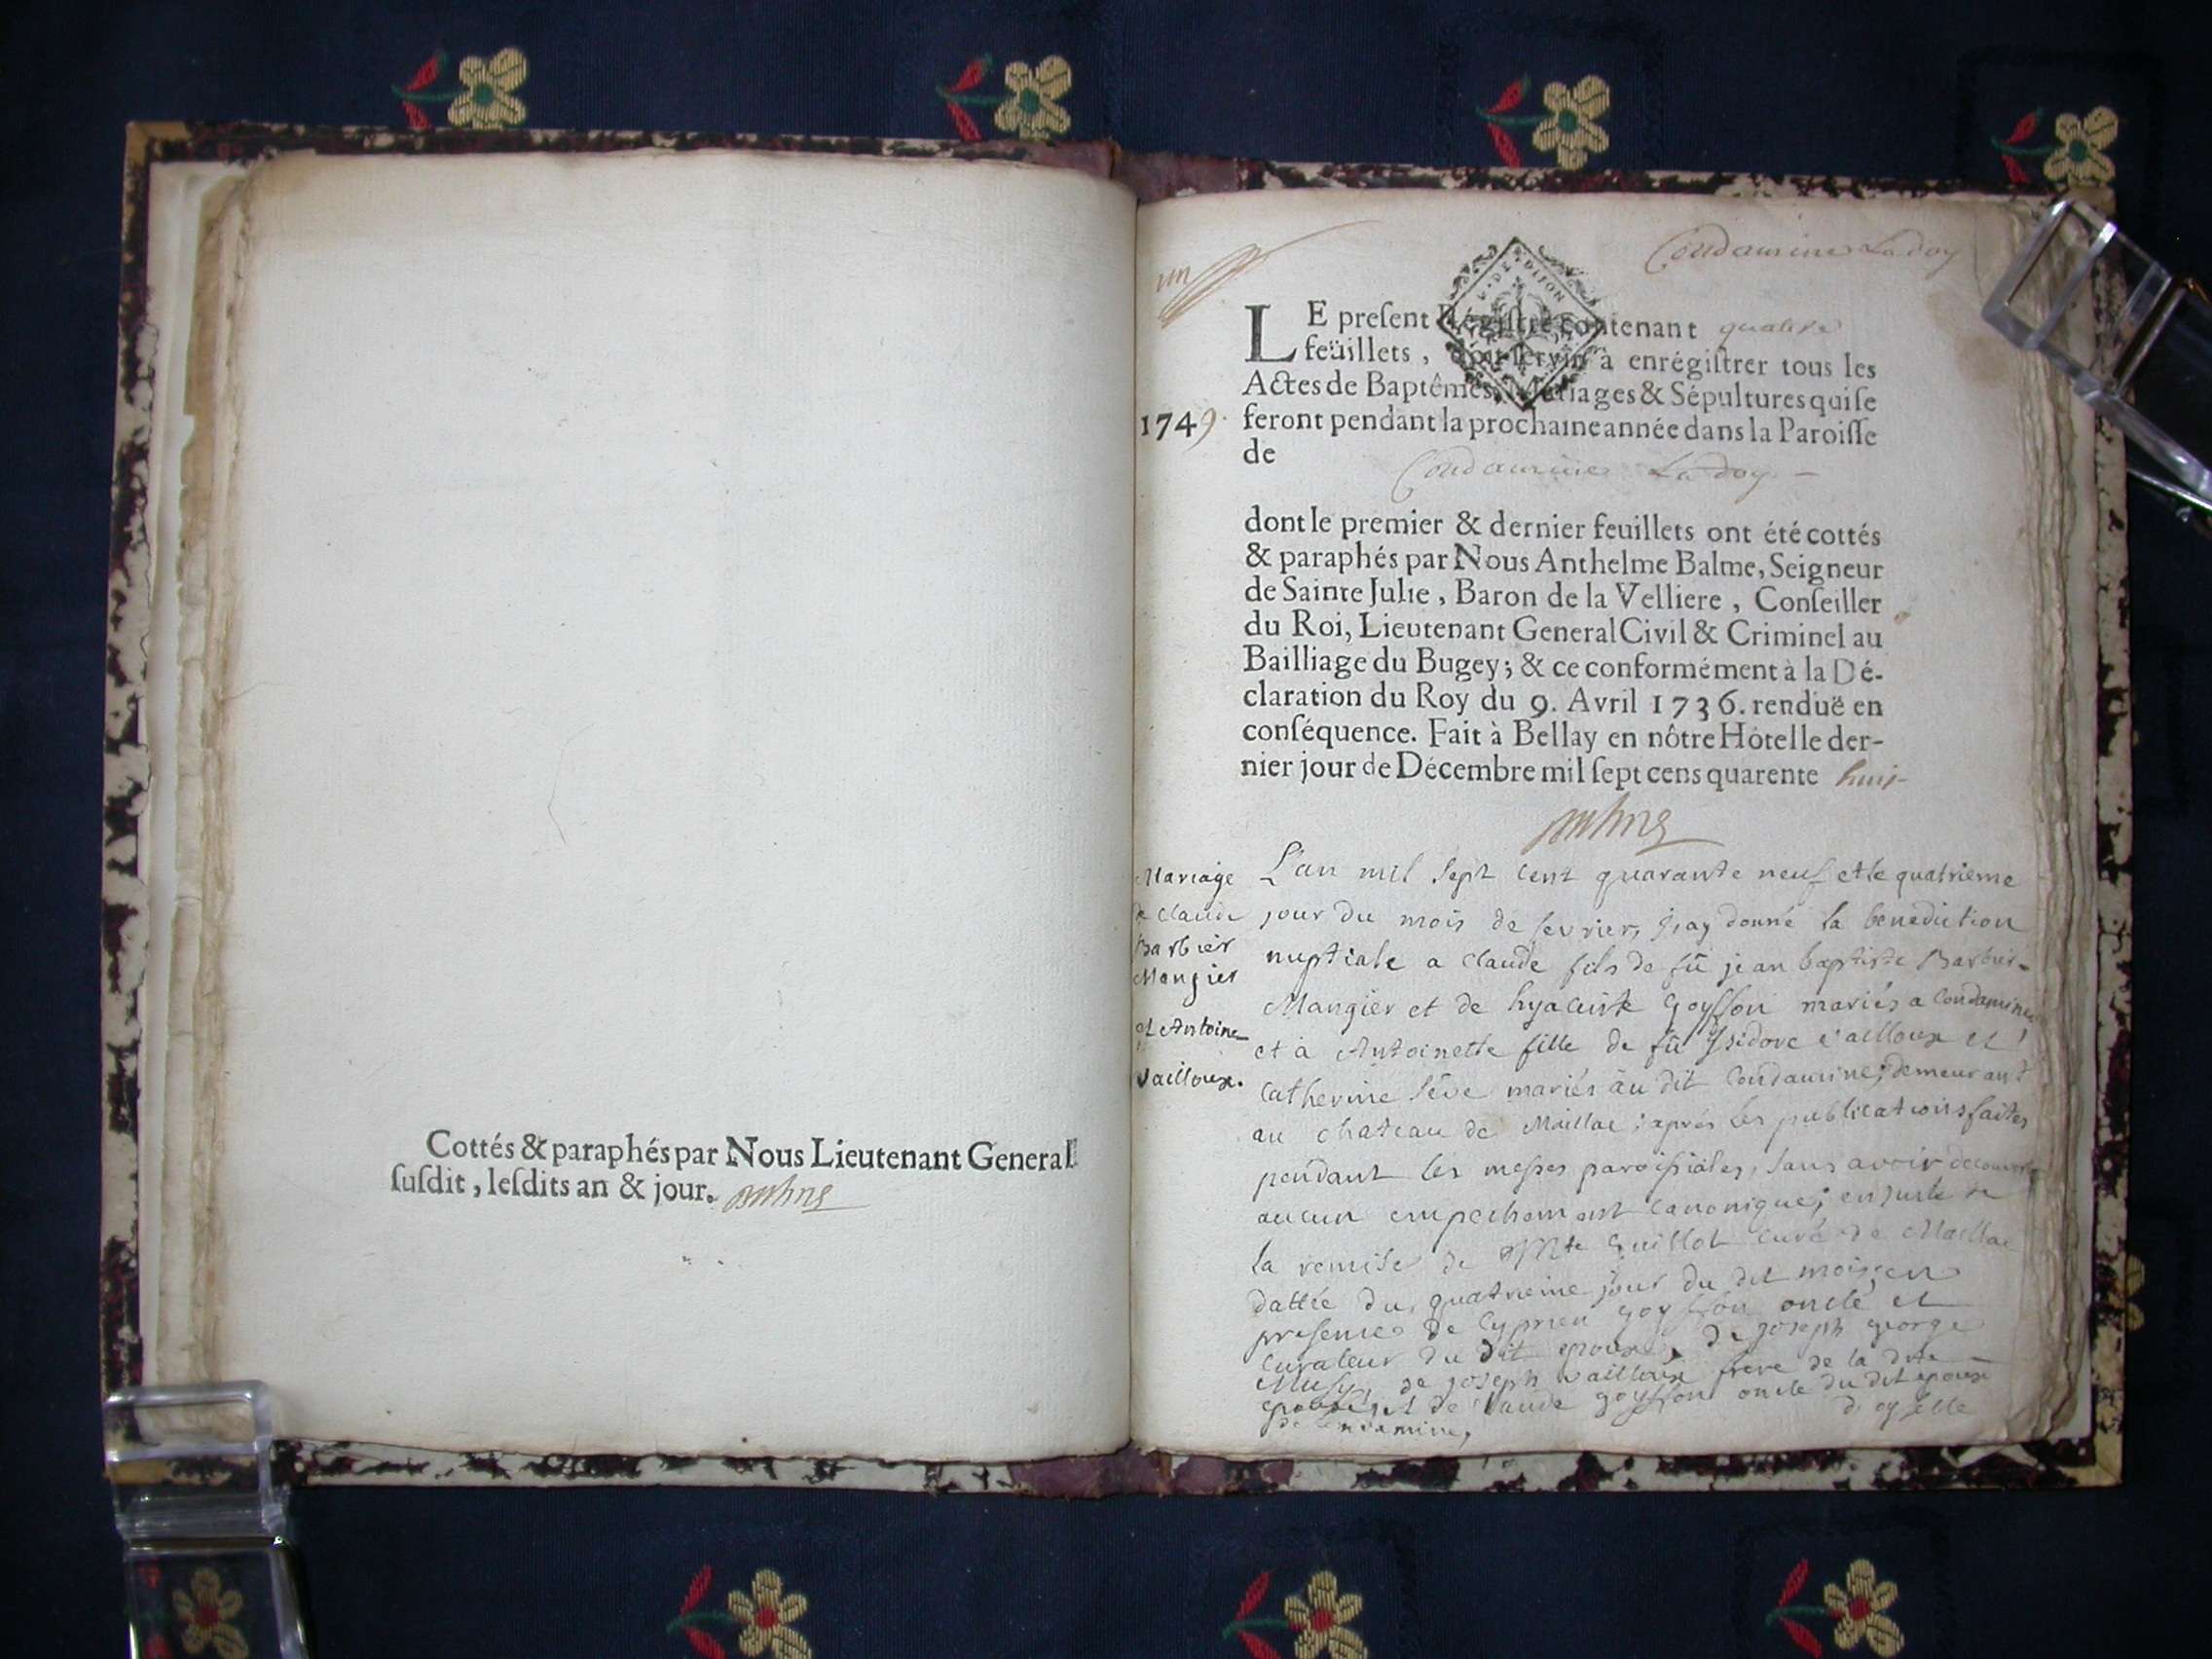 Cottés & paraphés par Nous Lieutenant General
ſuſdit, leſdits an & jour.
un
Condamine La doy
DE DIJON
LE preſent Régiſtre contenant quatre
feüillets, doit ſervir à enrégiſtrer tous les
Actes de Baptêmes, Mariages & Sépultures qui ſe
1749. feront pendant la prochaine année dans la Paroiſſe
de
Condamine La doy -
dont le premier & dernier feuillets ont été cottés
& paraphés par Nous Anthelme Balme, Seigneur
de Sainte Julie, Baron de la Velliere, Conſeiller
du Roi, Lieutenant General Civil & Criminel au
Bailliage du Bugey; & ce conformément à la Dé-
claration du Roy du 9. Avril 1736. renduë en
conſéquence. Fait à Bellay en nôtre Hôtel le der-
nier jour de Décembre mil ſept cens quarente huit
Mariage
de Claude
Barbier
Mangier
et Antoine
Vailloux.
L'an mil sept cent quarante neuf et le quatrieme
jour du mois de fevrier, j'ay donné la benediction
nuptiale a Claude fils de fû jean baptiste Barbier
Mangier et de hyacinte Goyffon mariés a Condamine
et à Antoinette fille de fû Ysidore vailloux et
Catherine Séve mariés au dit Condamine; demeurant
au chateau de Maillac; aprés les publications faites
pendant les messes paroissiales, sans avoir decouvert
aucun empechement canonique; ensuite de
la remise de Guillot curé de Maillac
dattée du quatrieme jour du dit mois; en
presence de Cyprien goyffon oncle et
curateur du dit epoux, de joseph george
Musy, de joseph vailloux frere de la dite
epouse, et de Claude goyffon oncle du dit epoux
de Condamine, d'oyselle